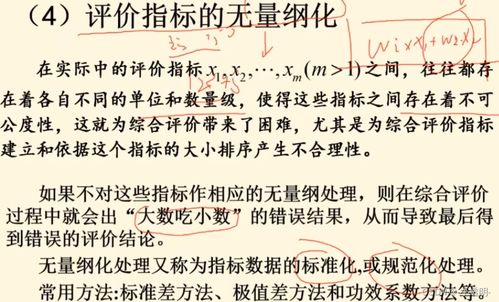 （4）评价指标的无量纲化
w1x1+w2x2
在实际中的评价指标x1,x2,⋯,xm(m>1)之间，往往都存
在着各自不同的单位和数量级，使得这些指标之间存在着不可
公度性，这就为综合评价带来了困难，尤其是为综合评价指标
建立和依据这个指标的大小排序产生不合理性。
如果不对这些指标作相应的无量纲处理，则在综合评价
过程中就会出“大数吃小数”的错误结果，从而导致最后得
到错误的评价结论。
无量纲化处理又称为指标数据的标准化,或规范化处理。
常用方法:标准差方法、极值差方法和功效系数方法等。